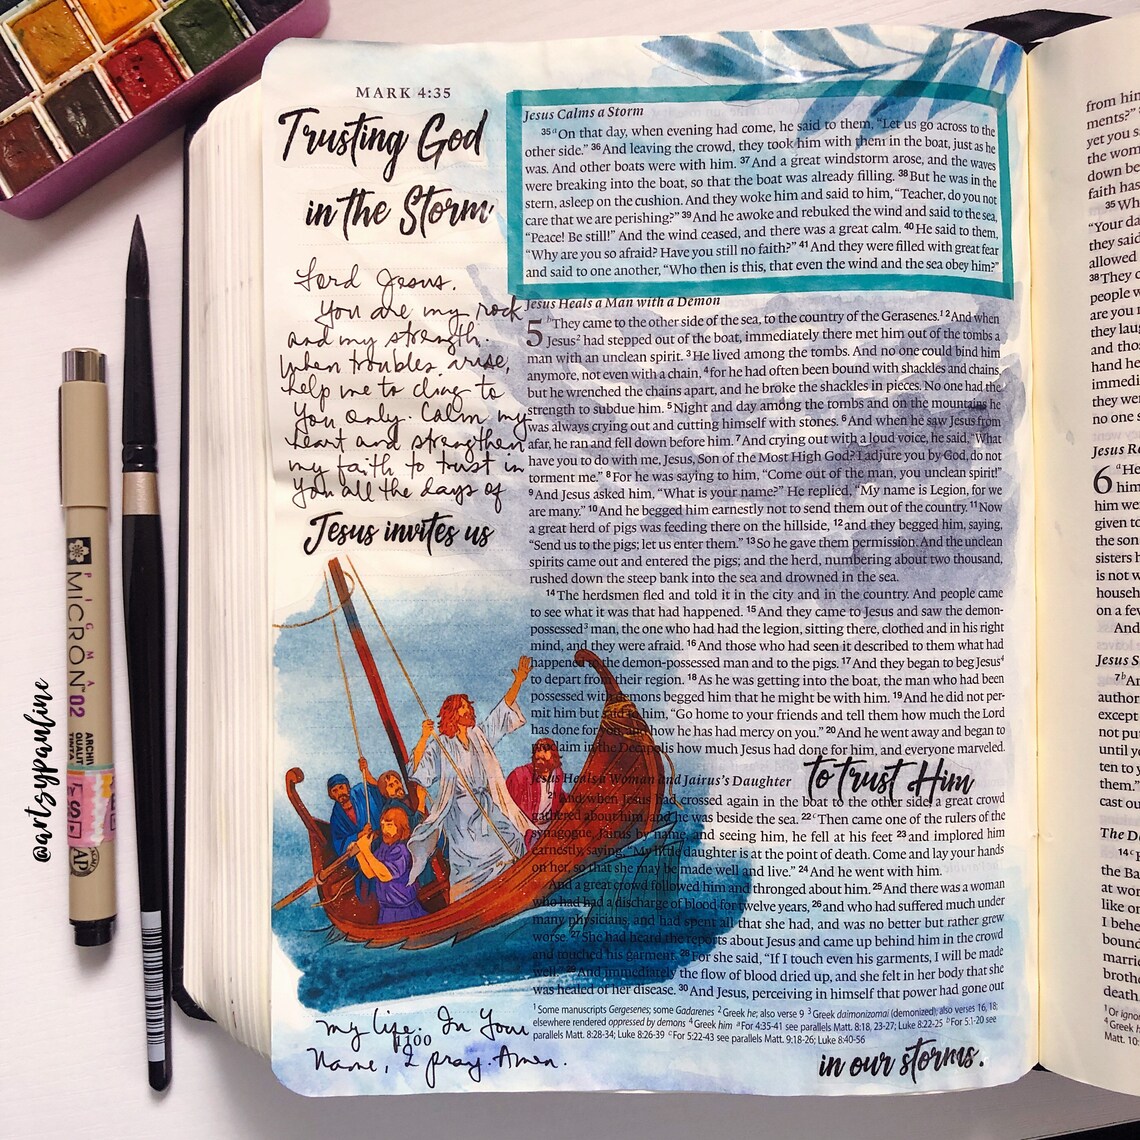 MARK 4:35
Trusting God
in the Storm
Lord Jesus.
You are my rock
and my strength.
When troubles arise,
help me to cling to
You only. Calm my
heart and strengthen
my faith to trust in
You all the days of
Jesus invites us
my life. In Your
1100
Name, I pray. Amen.
Jesus Calms a Storm
35 a On that day, when evening had come, he said to them, “Let us go across to the
other side.” 36 And leaving the crowd, they took him with them in the boat, just as he
was. And other boats were with him. 37 And a great windstorm arose, and the waves
were breaking into the boat, so that the boat was already filling. 38 But he was in the
stern, asleep on the cushion. And they woke him and said to him, “Teacher, do you not
care that we are perishing?” 39 And he awoke and rebuked the wind and said to the sea,
“Peace! Be still!” And the wind ceased, and there was a great calm. 40 He said to them,
“Why are you so afraid? Have you still no faith?” 41 And they were filled with great fear
and said to one another, “Who then is this, that even the wind and the sea obey him?”
Jesus Heals a Man with a Demon
5 They came to the other side of the sea, to the country of the Gerasenes.1 2 And when
Jesus2 had stepped out of the boat, immediately there met him out of the tombs a
man with an unclean spirit. 3 He lived among the tombs. And no one could bind him
anymore, not even with a chain, 4 for he had often been bound with shackles and chains,
but he wrenched the chains apart, and he broke the shackles in pieces. No one had the
strength to subdue him. 5 Night and day among the tombs and on the mountains he
was always crying out and cutting himself with stones. 6 And when he saw Jesus from
afar, he ran and fell down before him. 7 And crying out with a loud voice, he said, “What
have you to do with me, Jesus, Son of the Most High God? I adjure you by God, do not
torment me.” 8 For he was saying to him, “Come out of the man, you unclean spirit!”
9 And Jesus asked him, “What is your name?” He replied, “My name is Legion, for we
are many.” 10 And he begged him earnestly not to send them out of the country. 11 Now
a great herd of pigs was feeding there on the hillside, 12 and they begged him, saying,
“Send us to the pigs; let us enter them.” 13 So he gave them permission. And the unclean
spirits came out and entered the pigs; and the herd, numbering about two thousand,
rushed down the steep bank into the sea and drowned in the sea.
14 The herdsmen fled and told it in the city and in the country. And people came
to see what it was that had happened. 15 And they came to Jesus and saw the demon-
possessed3 man, the one who had had the legion, sitting there, clothed and in his right
mind, and they were afraid. 16 And those who had seen it described to them what had
happened to the demon-possessed man and to the pigs. 17 And they began to beg Jesus4
to depart from their region. 18 As he was getting into the boat, the man who had been
possessed with demons begged him that he might be with him. 19 And he did not per-
mit him but said to him, “Go home to your friends and tell them how much the Lord
has done for you, and how he has had mercy on you.” 20 And he went away and began to
proclaim in the Decapolis how much Jesus had done for him, and everyone marveled.
Jesus Heals a Woman and Jairus’s Daughter
to trust Him
21 And when Jesus had crossed again in the boat to the other side, a great crowd
gathered about him, and he was beside the sea. 22 c Then came one of the rulers of the
synagogue, Jairus by name, and seeing him, he fell at his feet 23 and implored him
earnestly, saying, “My little daughter is at the point of death. Come and lay your hands
on her, so that she may be made well and live.” 24 And he went with him.
And a great crowd followed him and thronged about him. 25 And there was a woman
who had had a discharge of blood for twelve years, 26 and who had suffered much under
many physicians, and had spent all that she had, and was no better but rather grew
worse. 27 She had heard the reports about Jesus and came up behind him in the crowd
and touched his garment. 28 For she said, “If I touch even his garments, I will be made
well.” 29 And immediately the flow of blood dried up, and she felt in her body that she
was healed of her disease. 30 And Jesus, perceiving in himself that power had gone out
1 Some manuscripts Gergesenes; some Gadarenes 2 Greek he; also verse 9 3 Greek daimonizomai (demonized); also verses 16, 18;
elsewhere rendered oppressed by demons 4 Greek him a For 4:35-41 see parallels Matt. 8:18, 23-27; Luke 8:22-25 b For 5:1-20 see
parallels Matt. 8:28-34; Luke 8:26-39 c For 5:22-43 see parallels Matt. 9:18-26; Luke 8:40-56
in our storms.
from him
ments?”
yet you s
the wom
down be
faith has
35 Wh
“Your da
they said
allowed
38 They c
people w
are you r
they laug
and tho
hand he
immedi
they wer
no one s
Jesus Re
6 a He
him
him we
given to
the son
sisters h
is not w
househ
on a few
And
Jesus S
7 b An
author
except
not put
until yo
ten to y
them.”
cast ou
The D
14 c
the Ba
at wor
like on
I behe
bound
marrie
brothe
death
1 Or ignor
4 Greek
Matt. 10:
PIGMA
MICRON 02
ARCHIV
QUALIT
AP
@artsypauline